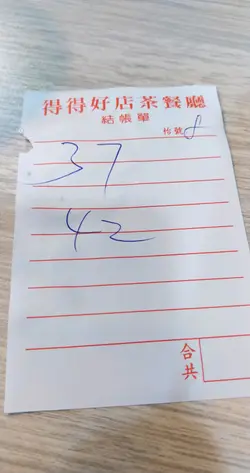 得得好店茶餐廳
結帳單
枱號 8
37
42
合共